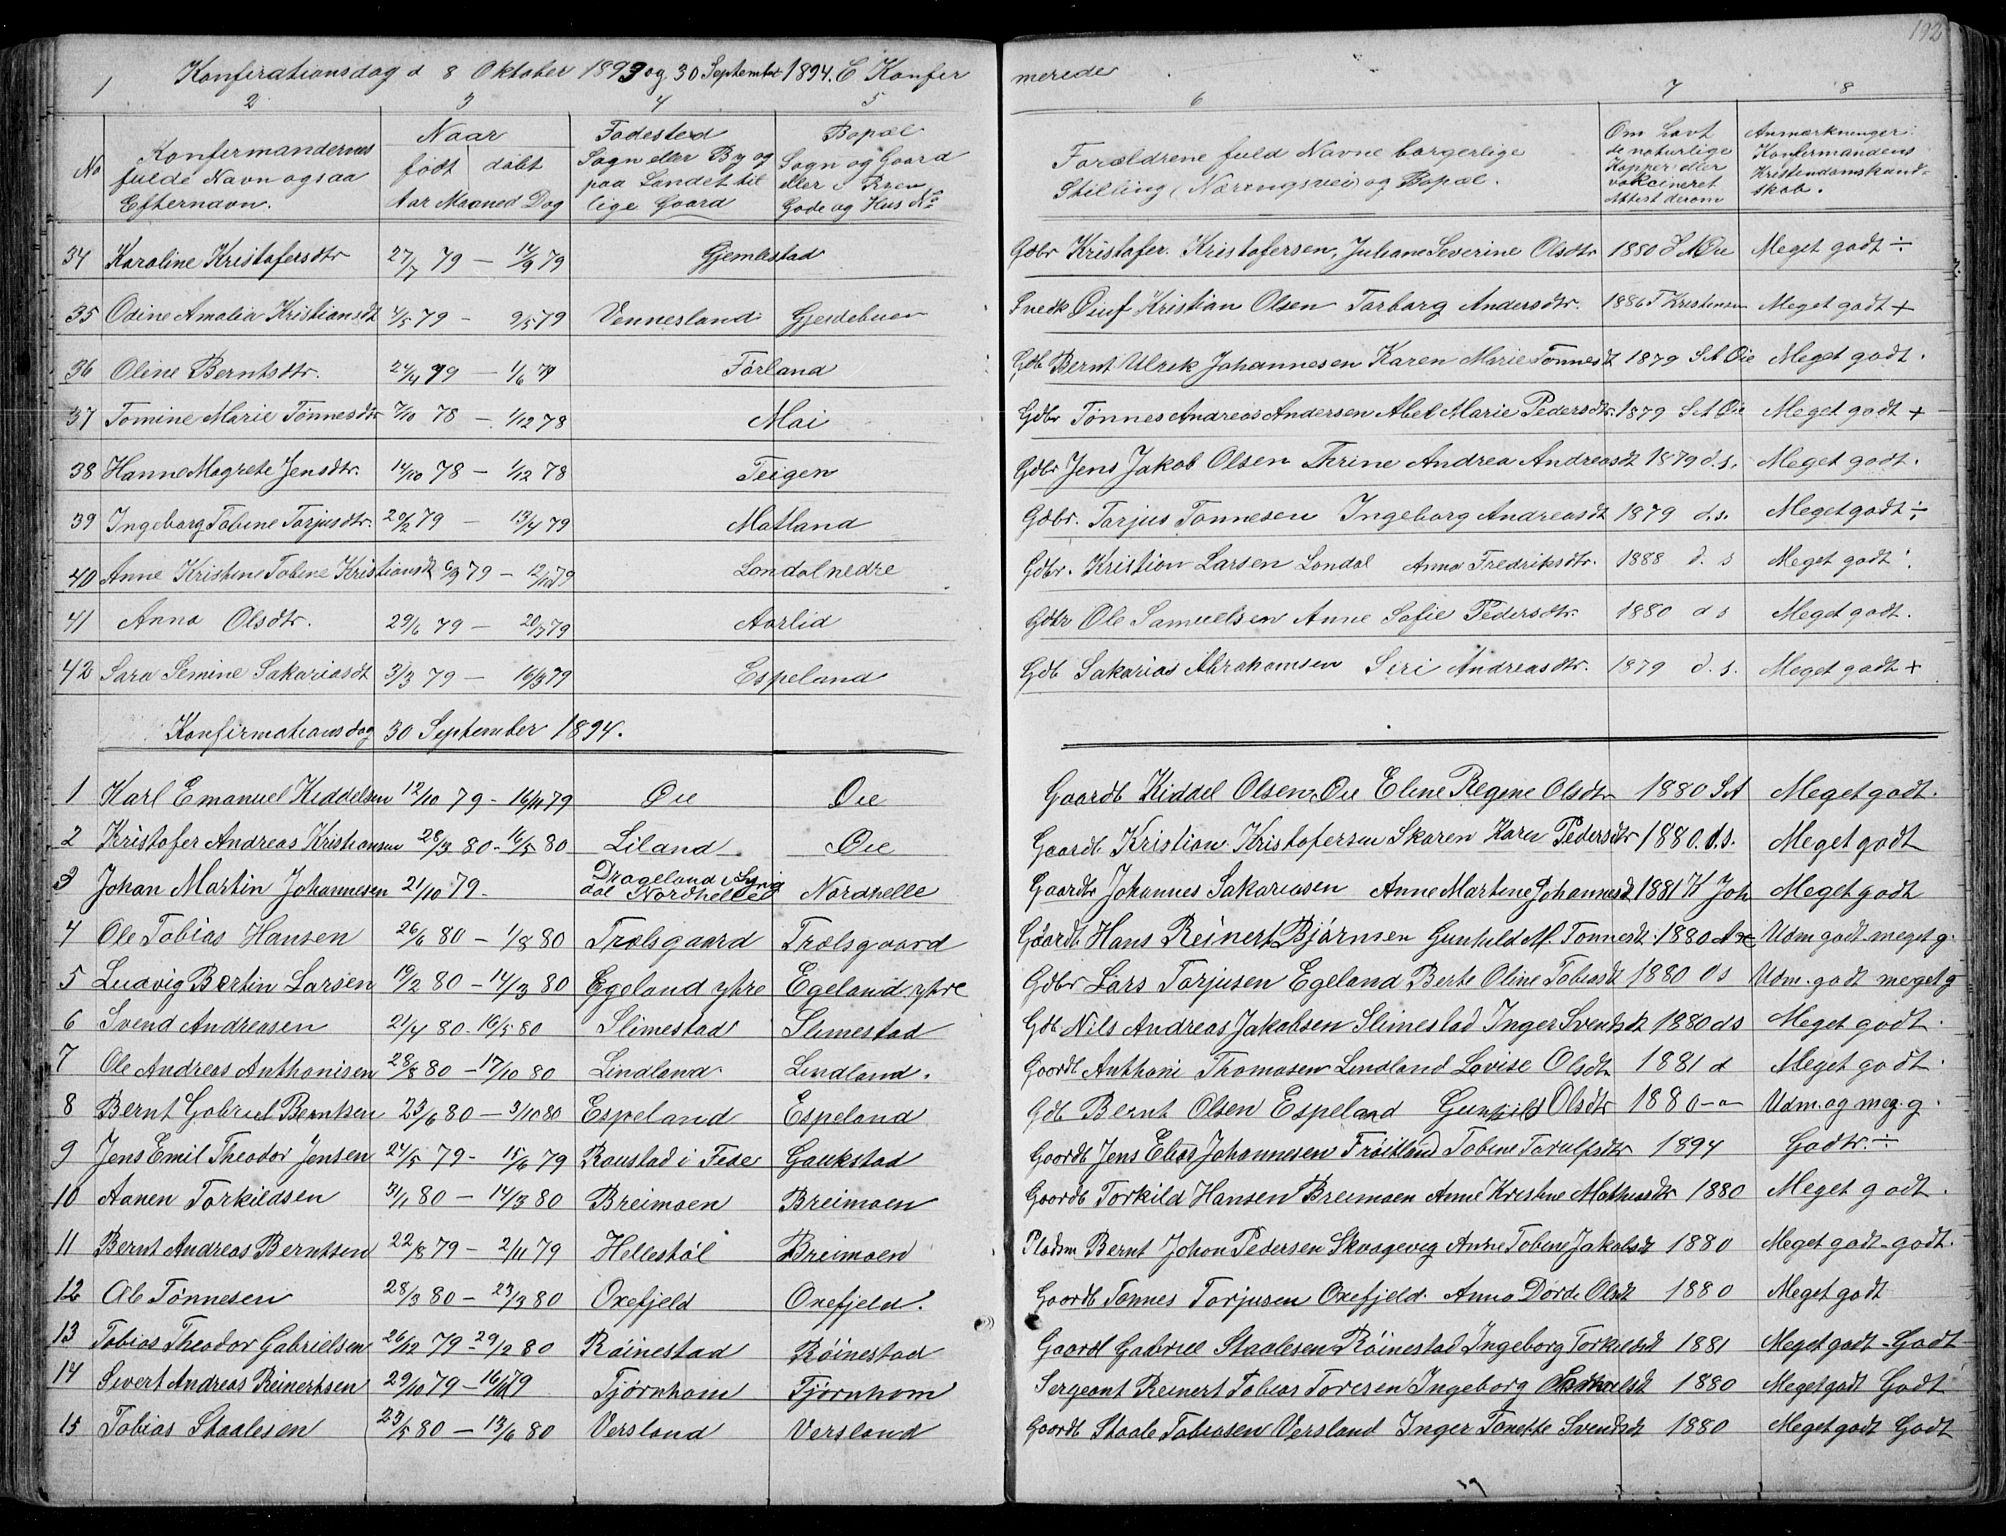 192
Konfirationsdag d 8 Oktober 1893 og 30 September 1894. C Konfer merede
1 2 3 4 5 6 7 8
No Konfermandernes fulde Navn ogsaa Efternavn. Naar født døbt Aar Maaned Dag Fødested Sogn eller By og paa Landet til lige Gaard Bopæl Sogn og Gaard eller i Byen Gade og Hus No Forældrene fuld Navne borgerlige Stilling (Næringsvei) og Bopæl. Om havt de naturlige Kopper eller vakcineret Attest derom Anmærkninger Konfermandens Kristendomskundskab.
34 Karoline Kristofersdtr 27/7 79 — 14/9 79 Gjemlestad Gdbr Kristofer Kristofersen, Juliane Severine Olsdtr 1880 S A Øie Meget godt ÷
35 Odine Amalia Kristiansdt 4/5 79 — 9/5 79 Vennesland Gjerdebuen Snedk Kristian Olsen Torborg Andersdtr. 1886 T Kristensen Meget godt +
36 Oline Berntsdtr. 24/4 79 — 1/6 79 Førland Gdb Bernt Ulrik Johannesen Karen Marie Tønnesdt 1879 S A Øie Meget godt.
37 Tomine Marie Tønnesdtr 7/10 78 — 1/12 78 Moi Gdbr Tønnes Andreas Andersen Abel Marie Pedersdtr. 1879 S A Øie Meget godt +
38 Hanne Magrete Jensdtr. 14/10 78 — 1/12 78 Teigen Gdbr Jens Jakob Olsen Thrine Andrea Andreasdt 1879 d.s. Meget godt.
39 Ingeborg Tobine Torjusdtr. 20/2 79 — 13/4 79 Matland Gdbr. Torjus Tønnesen Ingeborg Andreasdt 1879 d.s. Meget godt ÷
40 Anne Kristine Tobine Kristiansdt 6/9 79 — 12/10 79 Londal nedre Gdbr. Kristian Larsen Londal Anna Fredriksdtr. 1888 d. s Meget godt
41 Anna Olsdtr. 29/6 79 — 20/7 79 Aarlid Gdbr Ole Samuelsen Anne Sofie Pedersdtr. 1880 d s Meget godt.
42 Sara Semine Sakariasdt 3/3 79 — 16/3 79 Espeland Gdb Sakarias Abrahamsen Siri Andreasdtr. 1879 d. s. Meget godt +
Konfirmationsdag 30 September 1894.
1 Karl Emanuel Kiddelsen 12/10 79 - 16/11 79 Øie Øie Gaardb Kiddel Olsen Øie Eline Regine Olsdtr 1880 S A Meget godt.
2 Kristofer Andreas Kristiansen 28/3 80 - 16/5 80 Liland Øie Gaardb. Kristian Kristofersen Skaren Karen Pedersdtr 1880. d.s. Meget godt
3 Johan Martin Johannesen 21/10 79. Drageland i Lyngdal Nordhelle Nordhelle Gaardbr Johannes Sakariasen Anne Martine Johannesdt 1881 K Joh Meget godt
4 Ole Tobias Hansen 26/6 80 — 1/8 80 Trælsgaard Trælsgaard Gaardb Hans Reinert Bjørnsen Gunhild M. Tønnesdt. 1880 Udm godt meget g.
5 Ludvig Bertin Larsen 19/2 80 — 14/3 80 Egeland ytre Egeland ytre Gdbr Lars Torjusen Egeland Berte Oline Tobiasdt 1880 ds Udm. godt meget g
6 Svend Andreasen 21/4 80 - 16/5 80 Slimestad Slimestad Gdb Nils Andreas Jakobsen Slimestad Inger Svendsdt 1880 ds Meget godt.
7 Ole Andreas Anthonisen 28/8 80 — 17/10 80 Lindland Lindland. Gaardb Anthoni Thomasen Lindland Lovise Olsdt 1881 d Meget godt.
8 Bernt Gabriel Berntsen 23/6 80 — 3/10 80 Espeland Espeland Gdb Bernt Olsen Espeland Gunhild Olsdtr 1880 -"- Udm. og meg. g.
9 Jens Emil Theodor Jensen 24/5 79 - 15/6 79 Roustad i Fede Gaukstad Gaardb Jens Elias Johannesen Frøitland Tobine Torulfsdtr 1894 Godtr. ÷
10 Aanen Torkildsen 31/1 80 — 14/3 80 Breimoen Breimoen Gaardb Torkild Hansen Breimoen Anne Kristine Mathiasdtr 1880 Meget godt.
11 Bernt Andreas Berntsen 22/8 79 — 2/11 79 Hellestøl Breimoen Pladsm Bernt Johan Pedersen Skaagevig Anne Tobine Jakobsdt 1880 Meget godt - godt.
12 Ole Tønnesen 28/3 80 — 23/3 80 Oxefjeld Oxefjeld. Gaardb Tønnes Torjusen Oxefjeld. Anna Dorde Olsdt 1880 Meget godt
13 Tobias Theodor Gabrielsen 26/12 79 - 29/2 80 Røinestad Røinestad Gaardb Gabriel Staalesen Røinestad Ingeborg Torkildsdt 1881 Meget godt - Godt
14 Sivert Andreas Reinertsen 29/10 79 — 16/11 79 Tjørnhom Tjørnhom Sergeant Reinert Tobias Toresen Ingeborg 1880 Meget godt Godt
15 Tobias Staalesen 23/5 80 — 13/6 80 Versland Versland Gaardb Staale Tobiasen Versland Inger Tonette Svendsdt 1880 Meget godt Godt